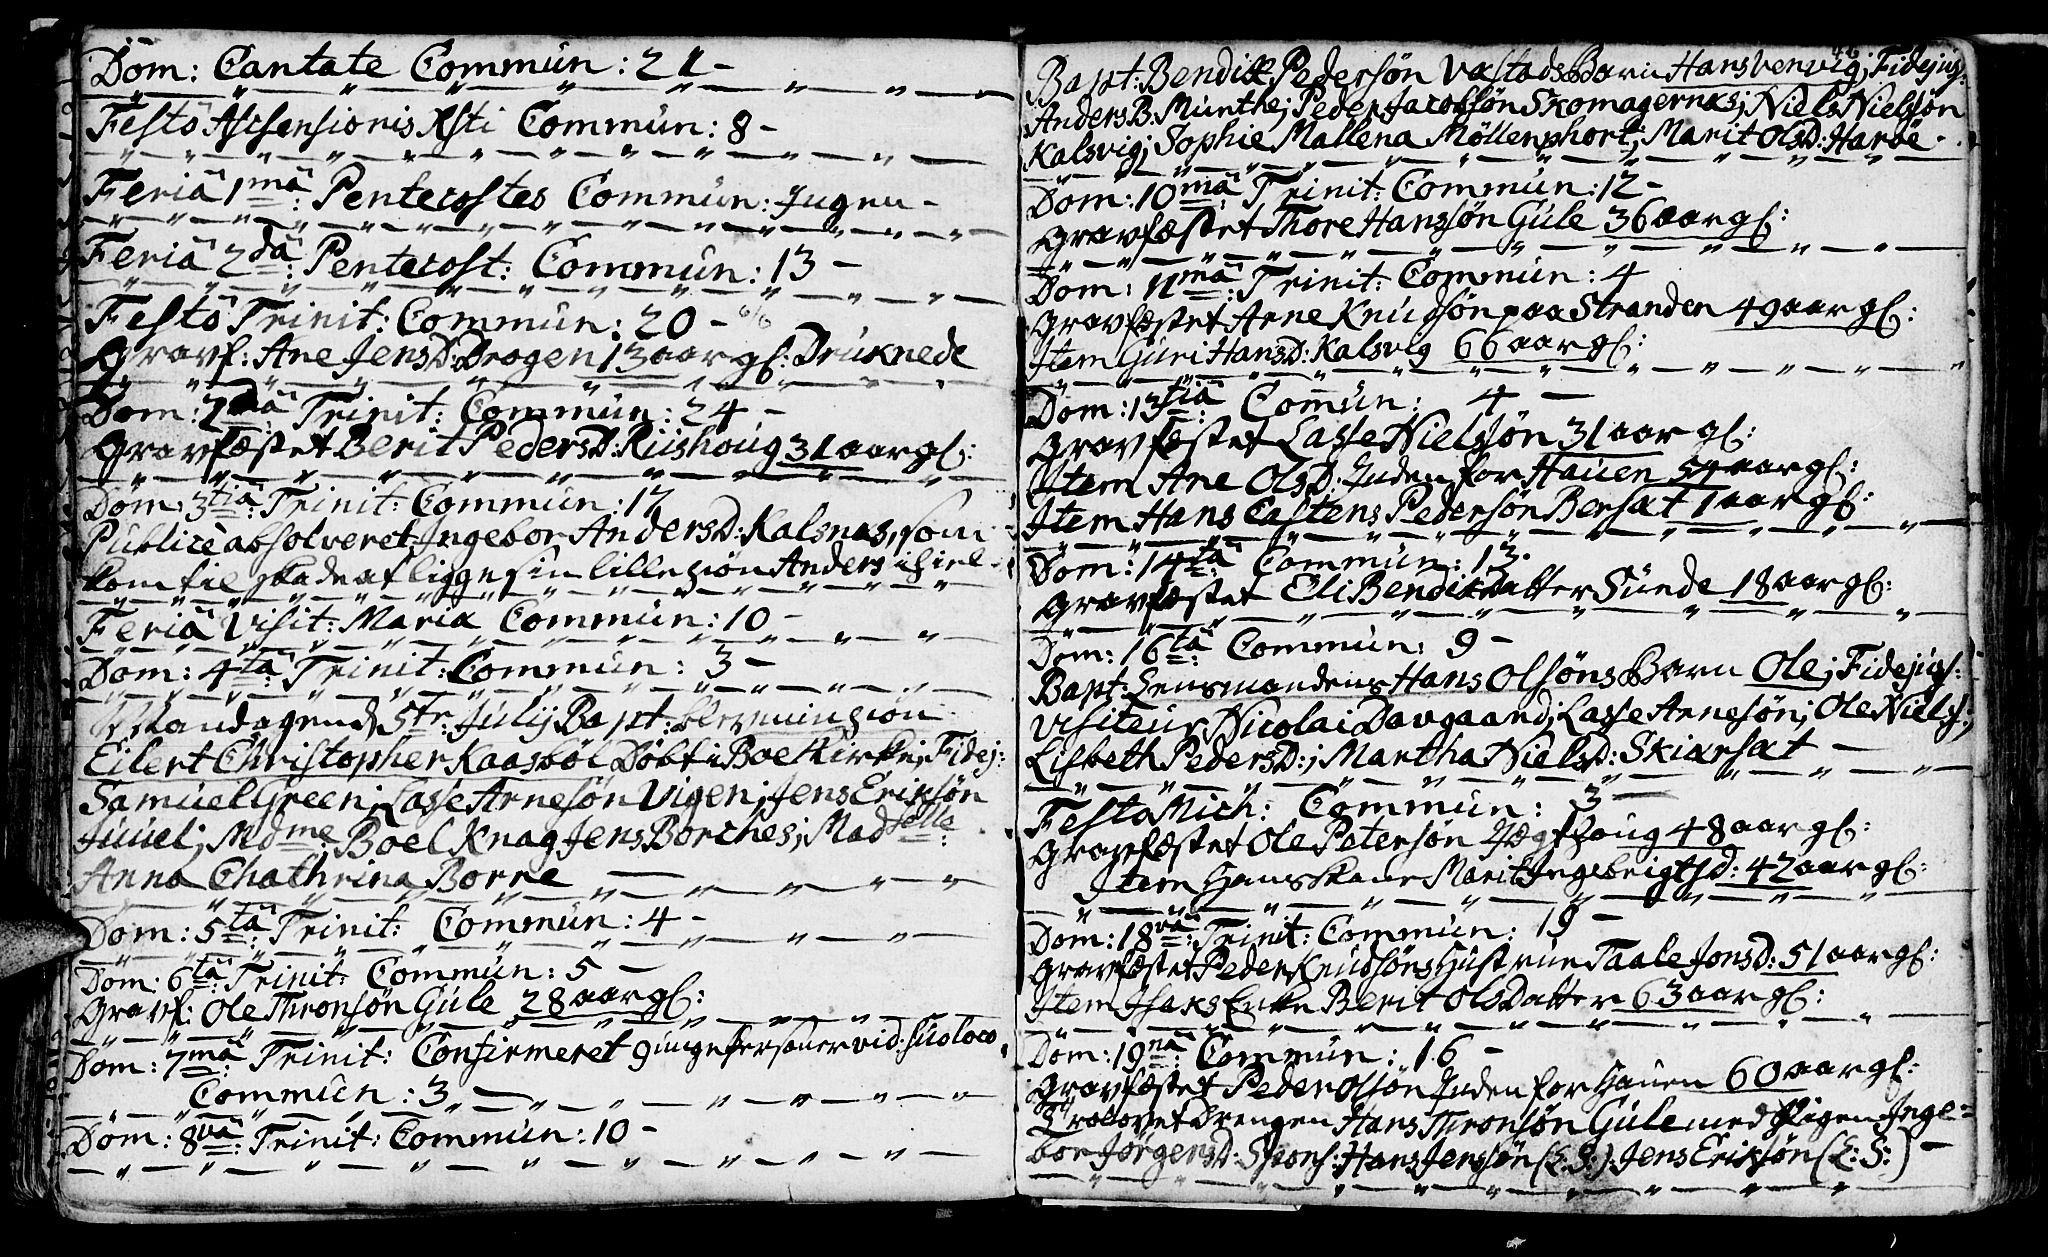 Dom: Cantate Commun: 21-
Festo Ascensionis Xsti Commun: 8-
Feria 1mâ: Pentecostes Commun: Ingen-
Feriâ 2dâ: Pentecost: Commun: 13-
Festô Trinit: Commun: 20- 6/6
Gravf: Ane JensD: Drogen 13 aar gl: Druknede
Dom: 2dâ Trinit: Commun: 24-
Gravfæstet Berit PedersD: Riishoug 31 aar gl:
Dom: 3tiâ: Trinit: Commun: 17
Publicè absolveret Ingebor AndersD: Kalsnæs, som
kom til skade at ligge sin lille Søn Anders ihiel-
Feriâ Visit: Mariæ Commun: 10-
Dom: 4tâ: Trinit: Commun: 3-
Mandagen d 5te Julij Bapt: Søn
Eilert Christopher Kaasbøl Døbt i Boe Kirke; Fidej:
Samuel Green; Lasse Arnesøn Vigen; Jens Eriksøn
Juuel; Madme: Boel Knag Jens Borches; Madselle:
Anna Chathrina Borre
Dom: 5tâ: Trinit: Commun: 4-
Dom: 6tâ: Trinit: Commun: 5-
Gravf: Ole Thronsøn Gule 28 aar gl:
Dom: 7mâ Trinit: Confirmeret 9 unge Personer vid: suo loco
Commun: 3-
Dom: 8vâ: Trinit: Commun: 10-
46.
Bapt: Bendix Pedersøn Vastads Barn Hans Venvig; Fidejus:
Anders B. Munthe; Peder Jacobsøn Skomagernæs; Niels Nielsøn
Kalsvig; Sophie Mallena Möllenphort; Marit OlsD: Harøe-
Dom: 10mâ Trinit: Commun: 12-
Gravfæstet Thore Hanssøn Gule 36 aar gl:
Dom: 11mâ: Trinit: Commun: 4
Gravfæstet Arne Knudsøn paa Stranden 49 aar gl:
Item Guri HansD: Kalsvig 66 aar gl:
Dom: 13tiâ: Comun: 4-
Gravfæstet Lasse Nielssøn 31 aar gl:
Item Ane OlsD: Inden for Hauen 54 aar gl:
Item Hans Castens Pedersøn Bersæt 1 aar gl:
Dom: 14tâ: Commun: 13.
Gravfæstet Eli Bendixdatter Sunde 18 aar gl:
Dom: 16tâ: Commun: 9-
Bapt: Lensmandens Hans Olsøns Barn Ole; Fidejus:
Visiteur Nicolai Davgaard; Lasse Arnesøn; Ole Niels:;
Lisbeth PedersD:; Martha NielsD: Skiarsæt-
Festo Mich: Commun: 3-
Gravfæstet Ole Petersøn Houg 48 aar gl:
Item Hans Kone Marit Ingebrigtsd: 42 aar gl:
Dom: 18vâ: Trinit: Commun: 19-
Gravfæstet Peder Knudsøns Hustrue Taale Jonsd: 51 aar gl:
Item Isaks Enke Berit Olsdatter 63 aar gl:
Dom: 19nâ: Commun: 16-
Gravfæstet Peder Olsøn Inden for Hauen 60 aar gl:
Trolovet Drengen Hans Thronsøn Gule med Pigen Inge=
bor JørgensD: Spons: Hans Jenssøn (L:S:). Jens Eriksøn (L:S:)-